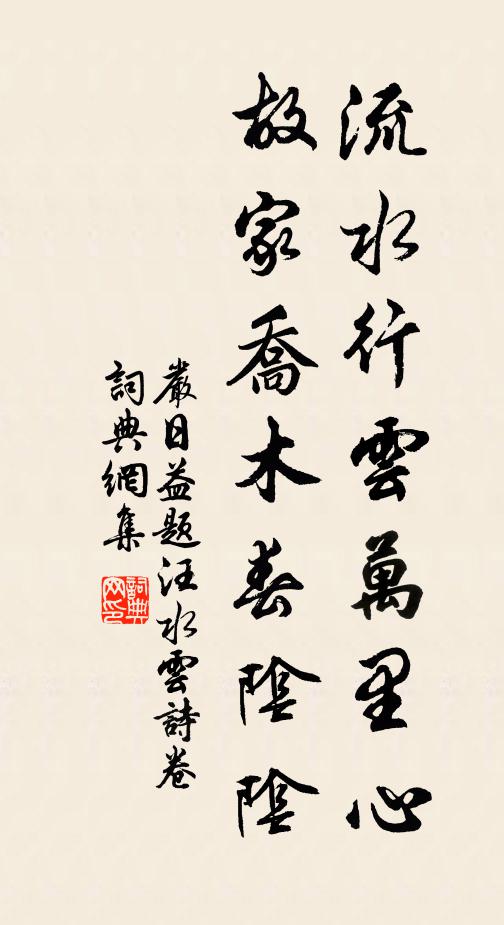 流水行雲萬里心
故家喬木春陰陰
嚴日益題汪水雲詩卷
詞典網集
詞典網印